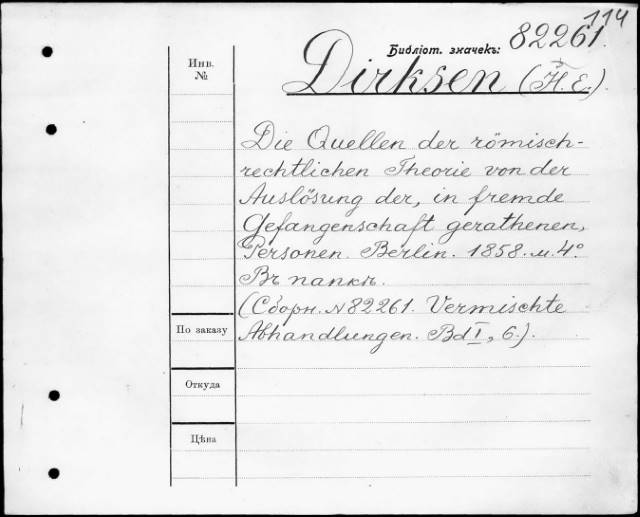 114
Библіот. значекъ: 82261.
Инв.
№
Dirksen (H. E.).
Die Quellen der römisch-
rechtlichen Theorie von der
Auslösung der, in fremde
Gefangenschaft gerathenen,
Personen. Berlin. 1858. м. 4°.
Въ папкѣ.
(Сборн. № 82261. Vermischte
Abhandlungen. Bd I, 6.).
По заказу
Откуда
Цѣна